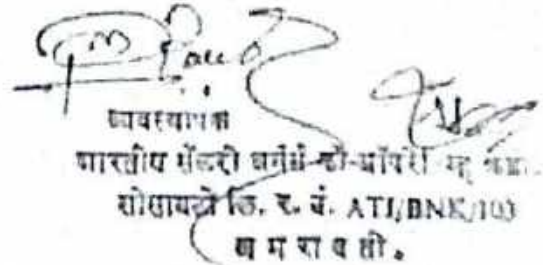 व्यवस्थापक
भारतीय सॅलरी अर्नर्स को-ऑपरे
सोसायटी लि. र. नं. ATI/BNK/103
अमरावती.